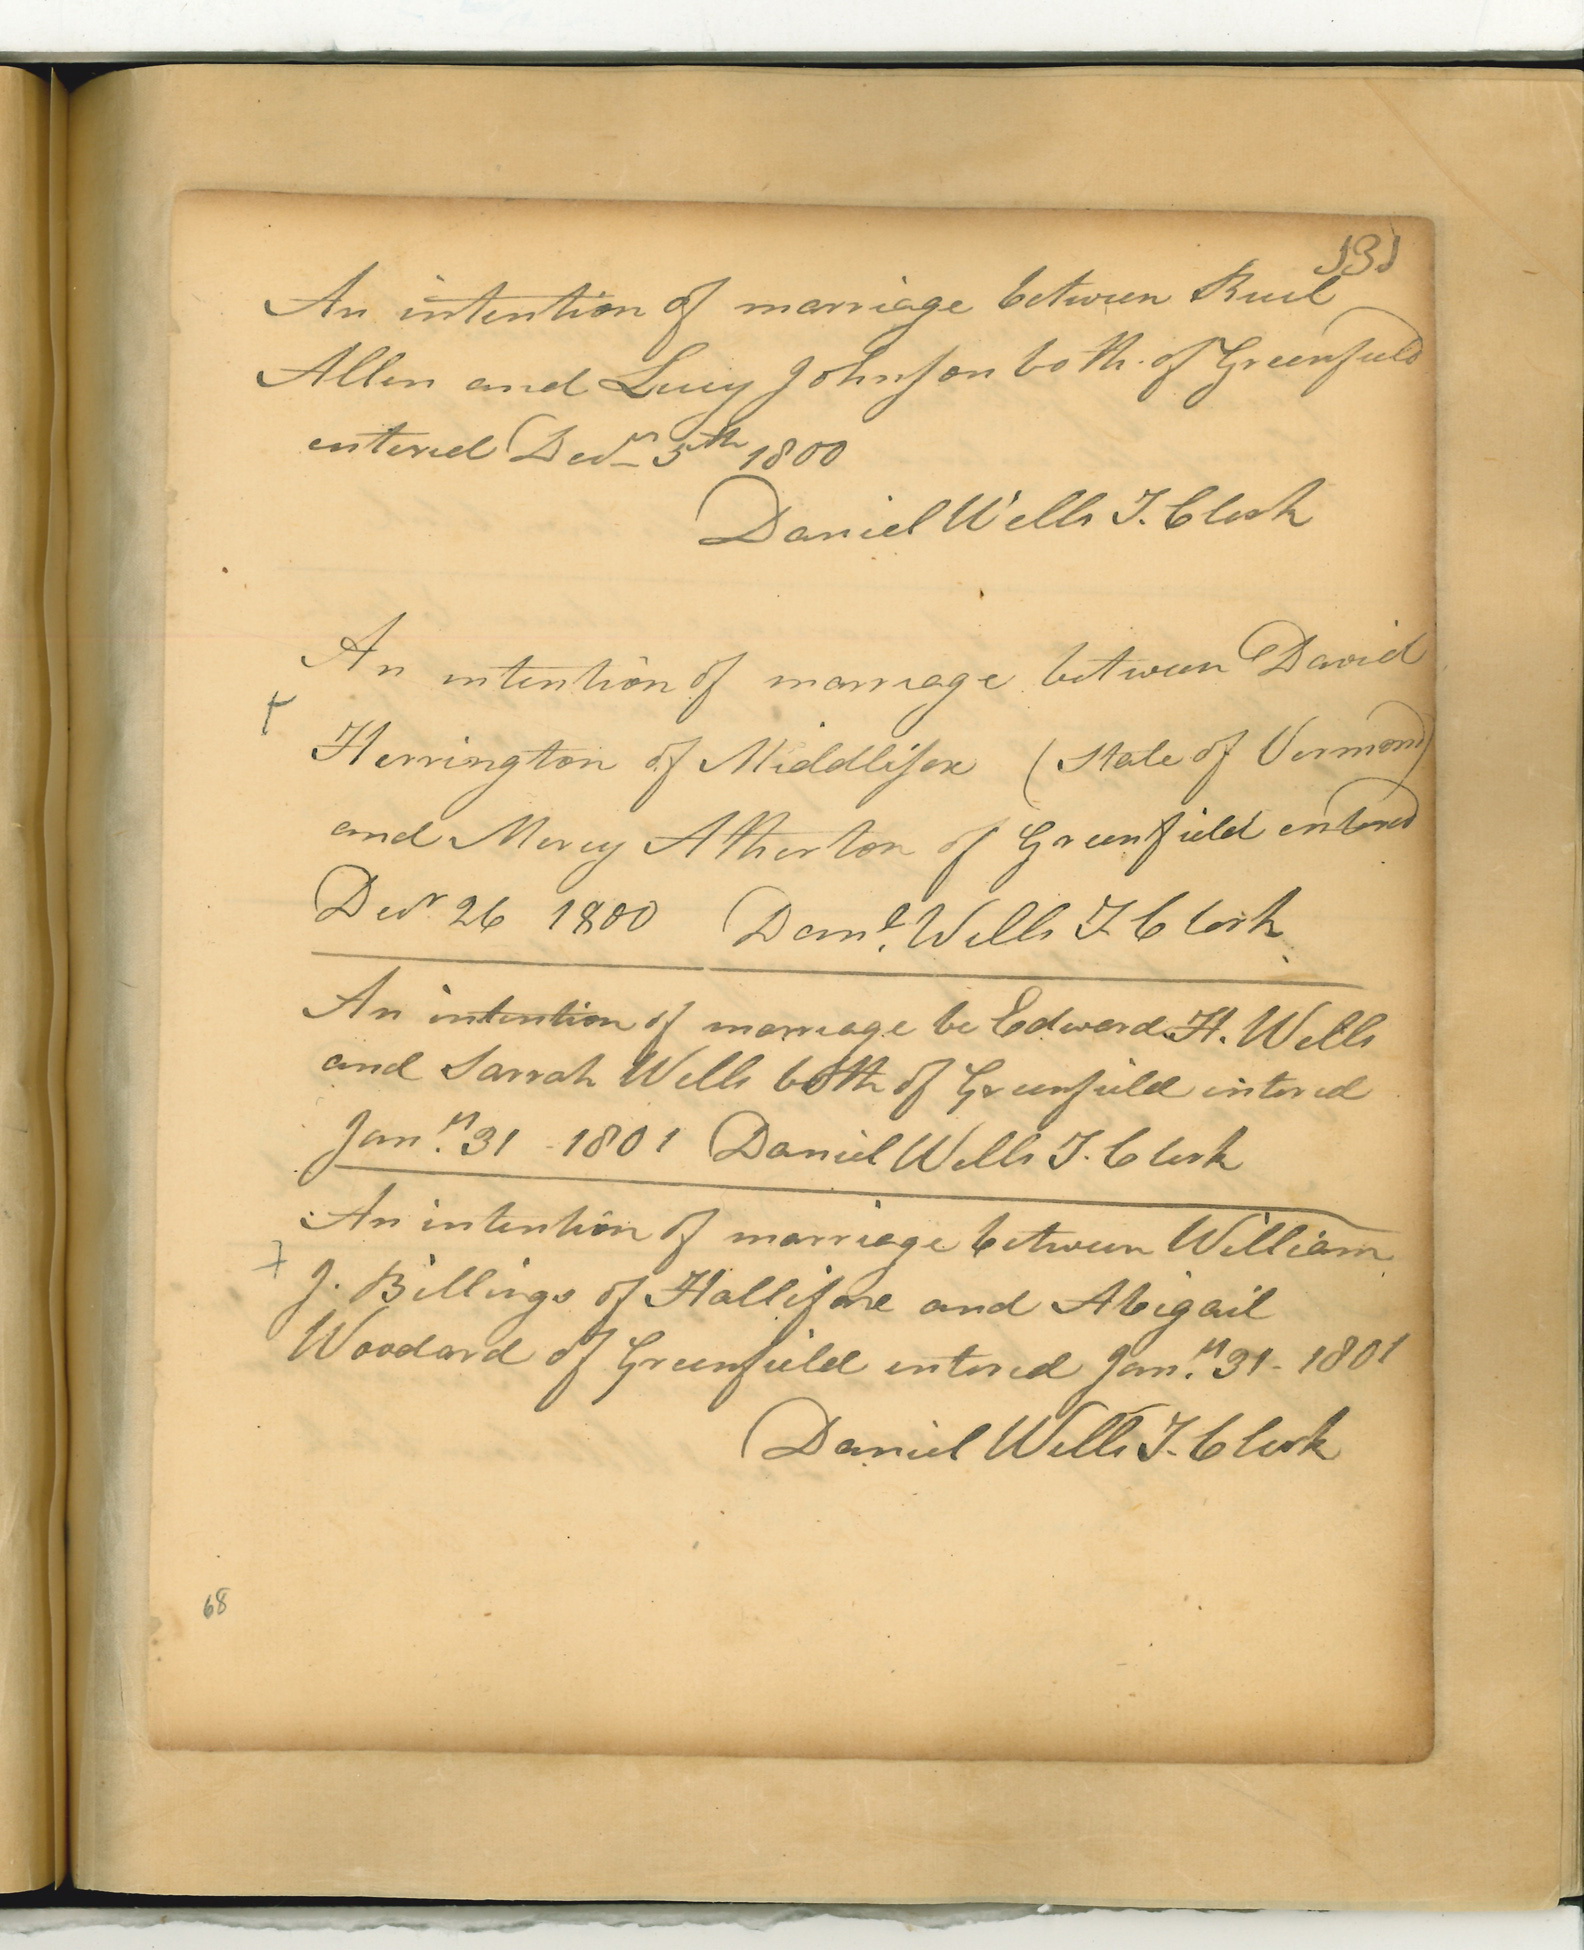 131
An intention of marriage between Ruel
Allen and Lucy Johnson both of Greenfield
entered Decr 5th 1800
Daniel Wells T. Clerk
An intention of marriage between David
Herrington of Middlesex (State of Vermont)
and Mercy Atherton of Greenfield entered
Decr 26 1800 Danl. Wells T Clerk
An intention of marriage be Edward H. Wells
and Sarrah Wells both of Greenfield entered
Jany. 31 - 1801 Daniel Wells T. Clerk
An intention of marriage between William
J. Billings of Hallifax and Abigail
Woodard of Greenfield entered Jany. 31 - 1801
Daniel Wells T. Clerk
68